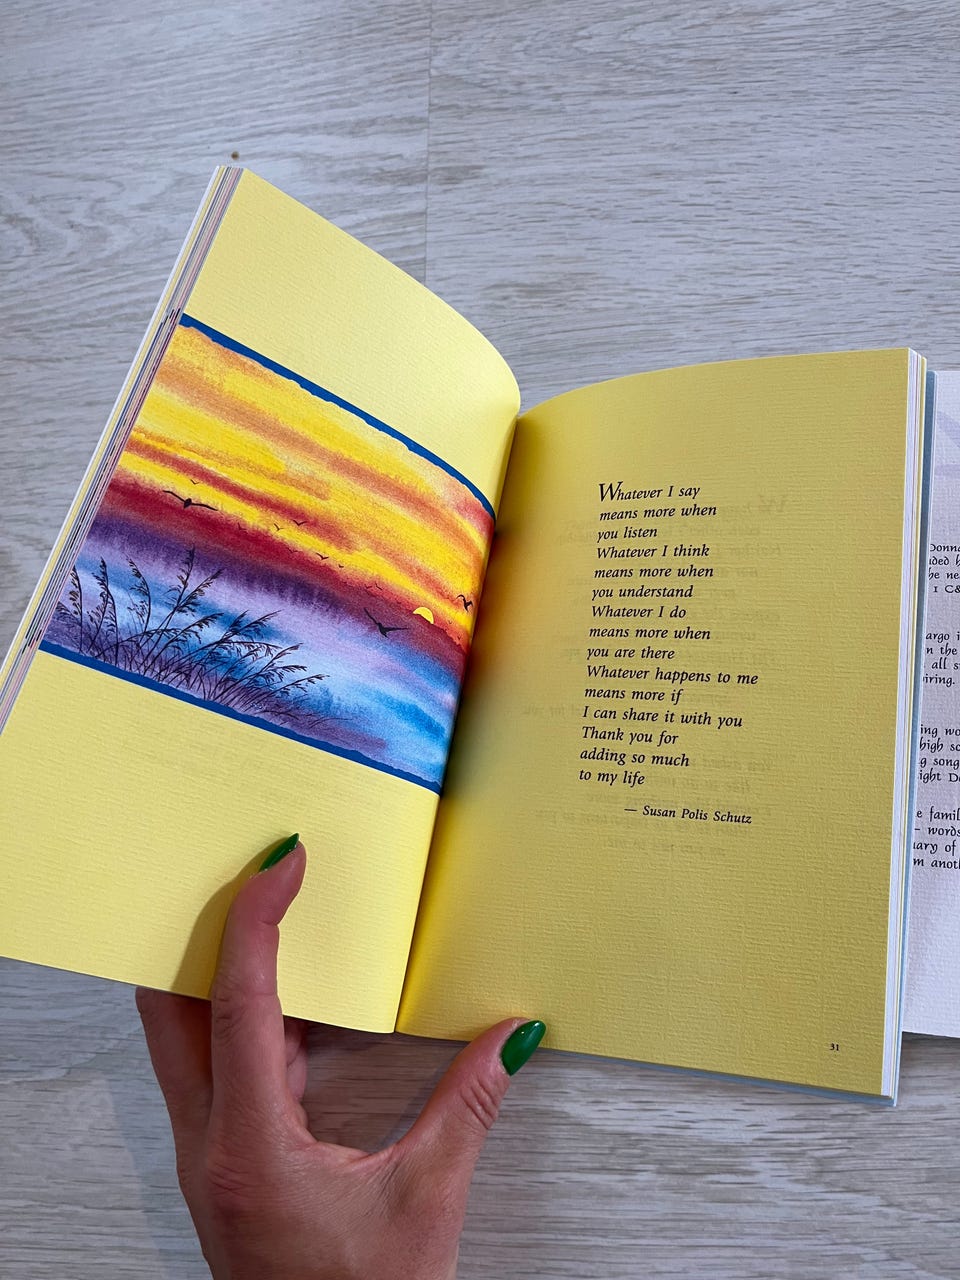 Whatever I say
means more when
you listen
Whatever I think
means more when
you understand
Whatever I do
means more when
you are there
Whatever happens to me
means more if
I can share it with you
Thank you for
adding so much
to my life
— Susan Polis Schutz
31
Donna
he ne
1 C&
n the
all s
iring.
ing wo
high sc
g song
ight D
e famil
— words
uary of
m anoth